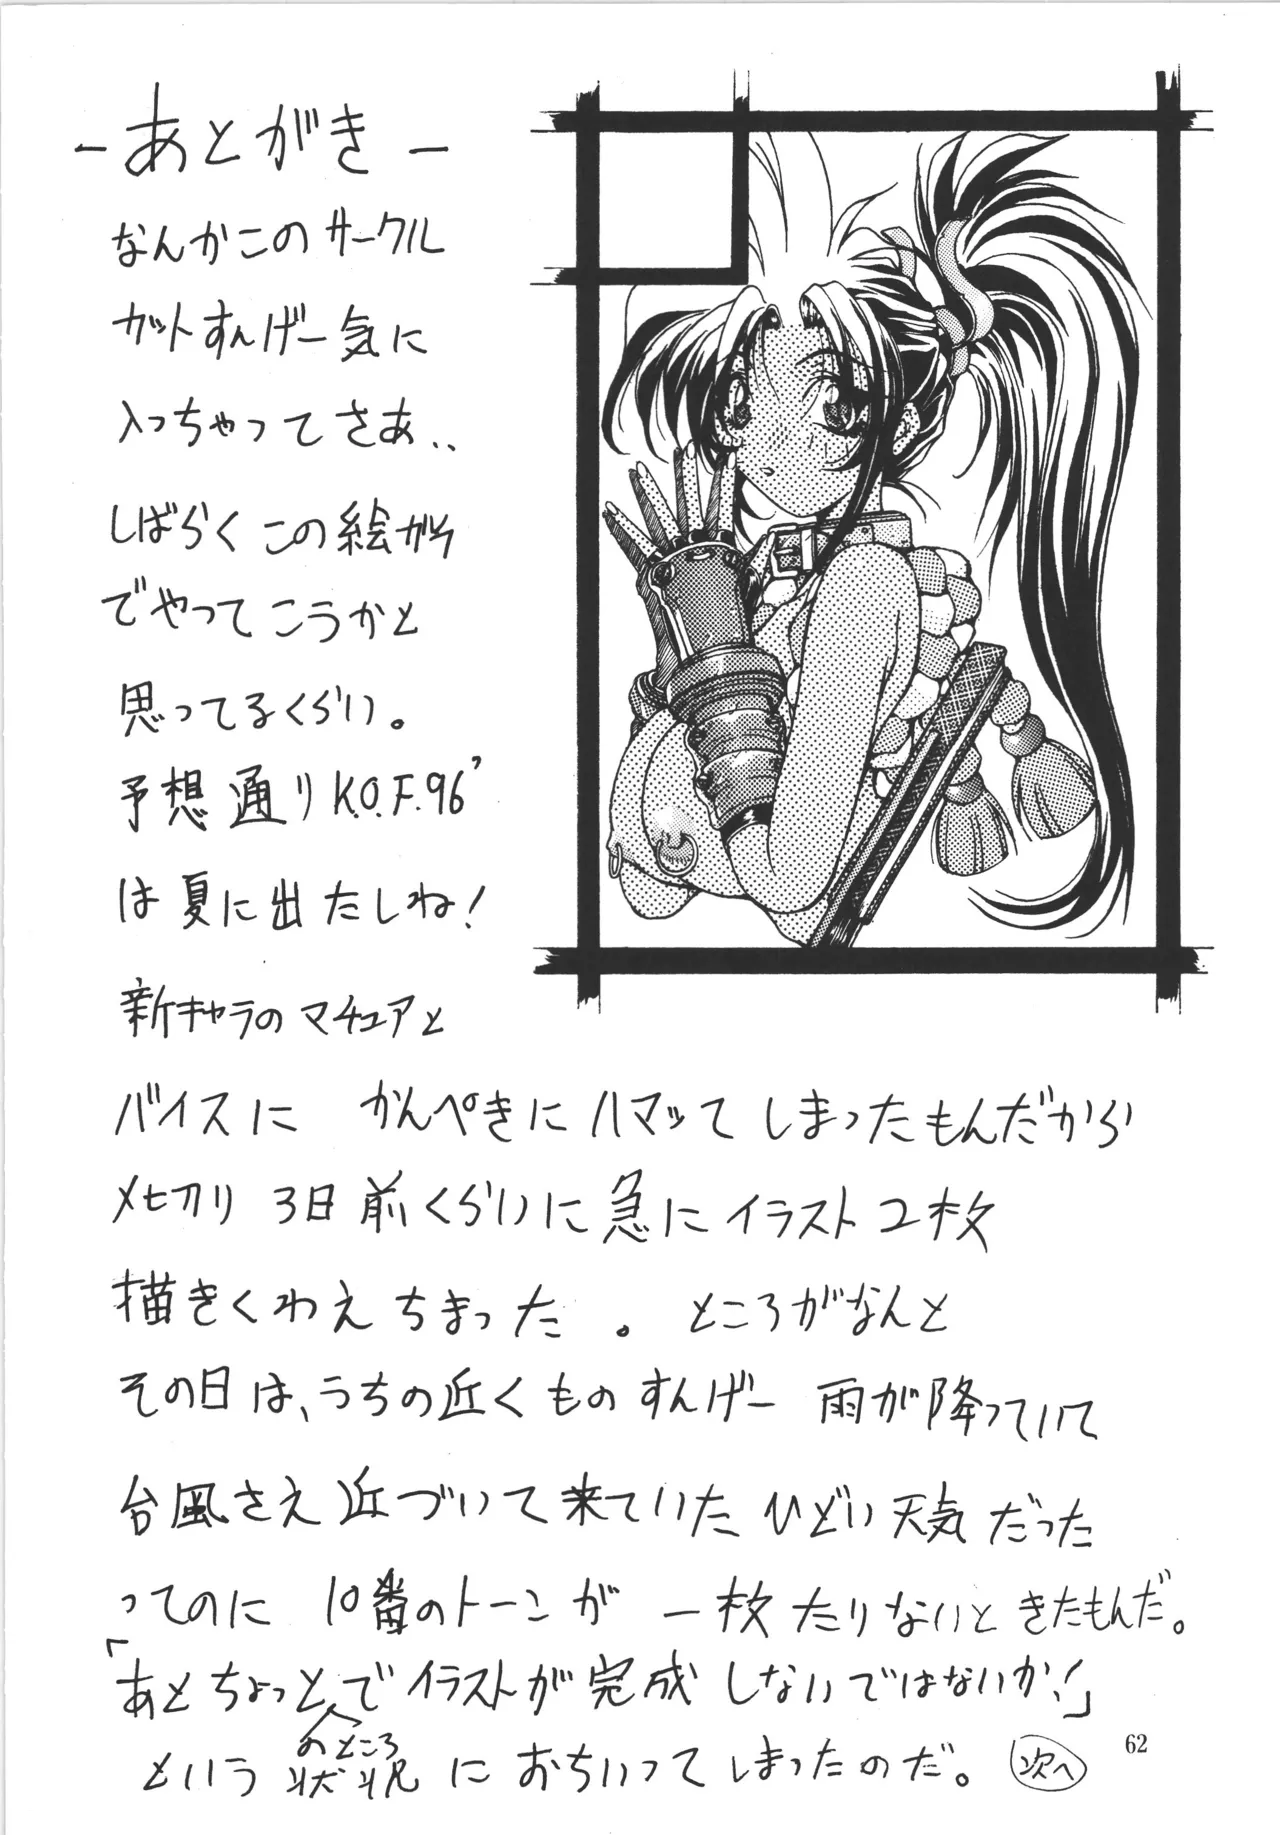 -あとがき-
なんかこのサークル
カットすんげー気に
入っちゃってさあ..
しばらくこの絵がら
でやってこうかと
思ってるくらい。
予想通りK.O.F.96'
は夏に出たしね!
新キャラのマチュアと
バイスに かんぺきにハマッてしまったもんだから
〆切り 3日前くらいに急にイラスト2枚
描きくわえちまった。ところがなんと
その日は、うちの近くものすんげー 雨が降っていて
台風さえ近づいて来ていたひどい天気だった
ってのに 10番のトーンが 一枚たりないときたもんだ。
「あとちょっとのところでイラストが完成しないではないか!」
という状況におちいってしまったのだ。 次へ
62